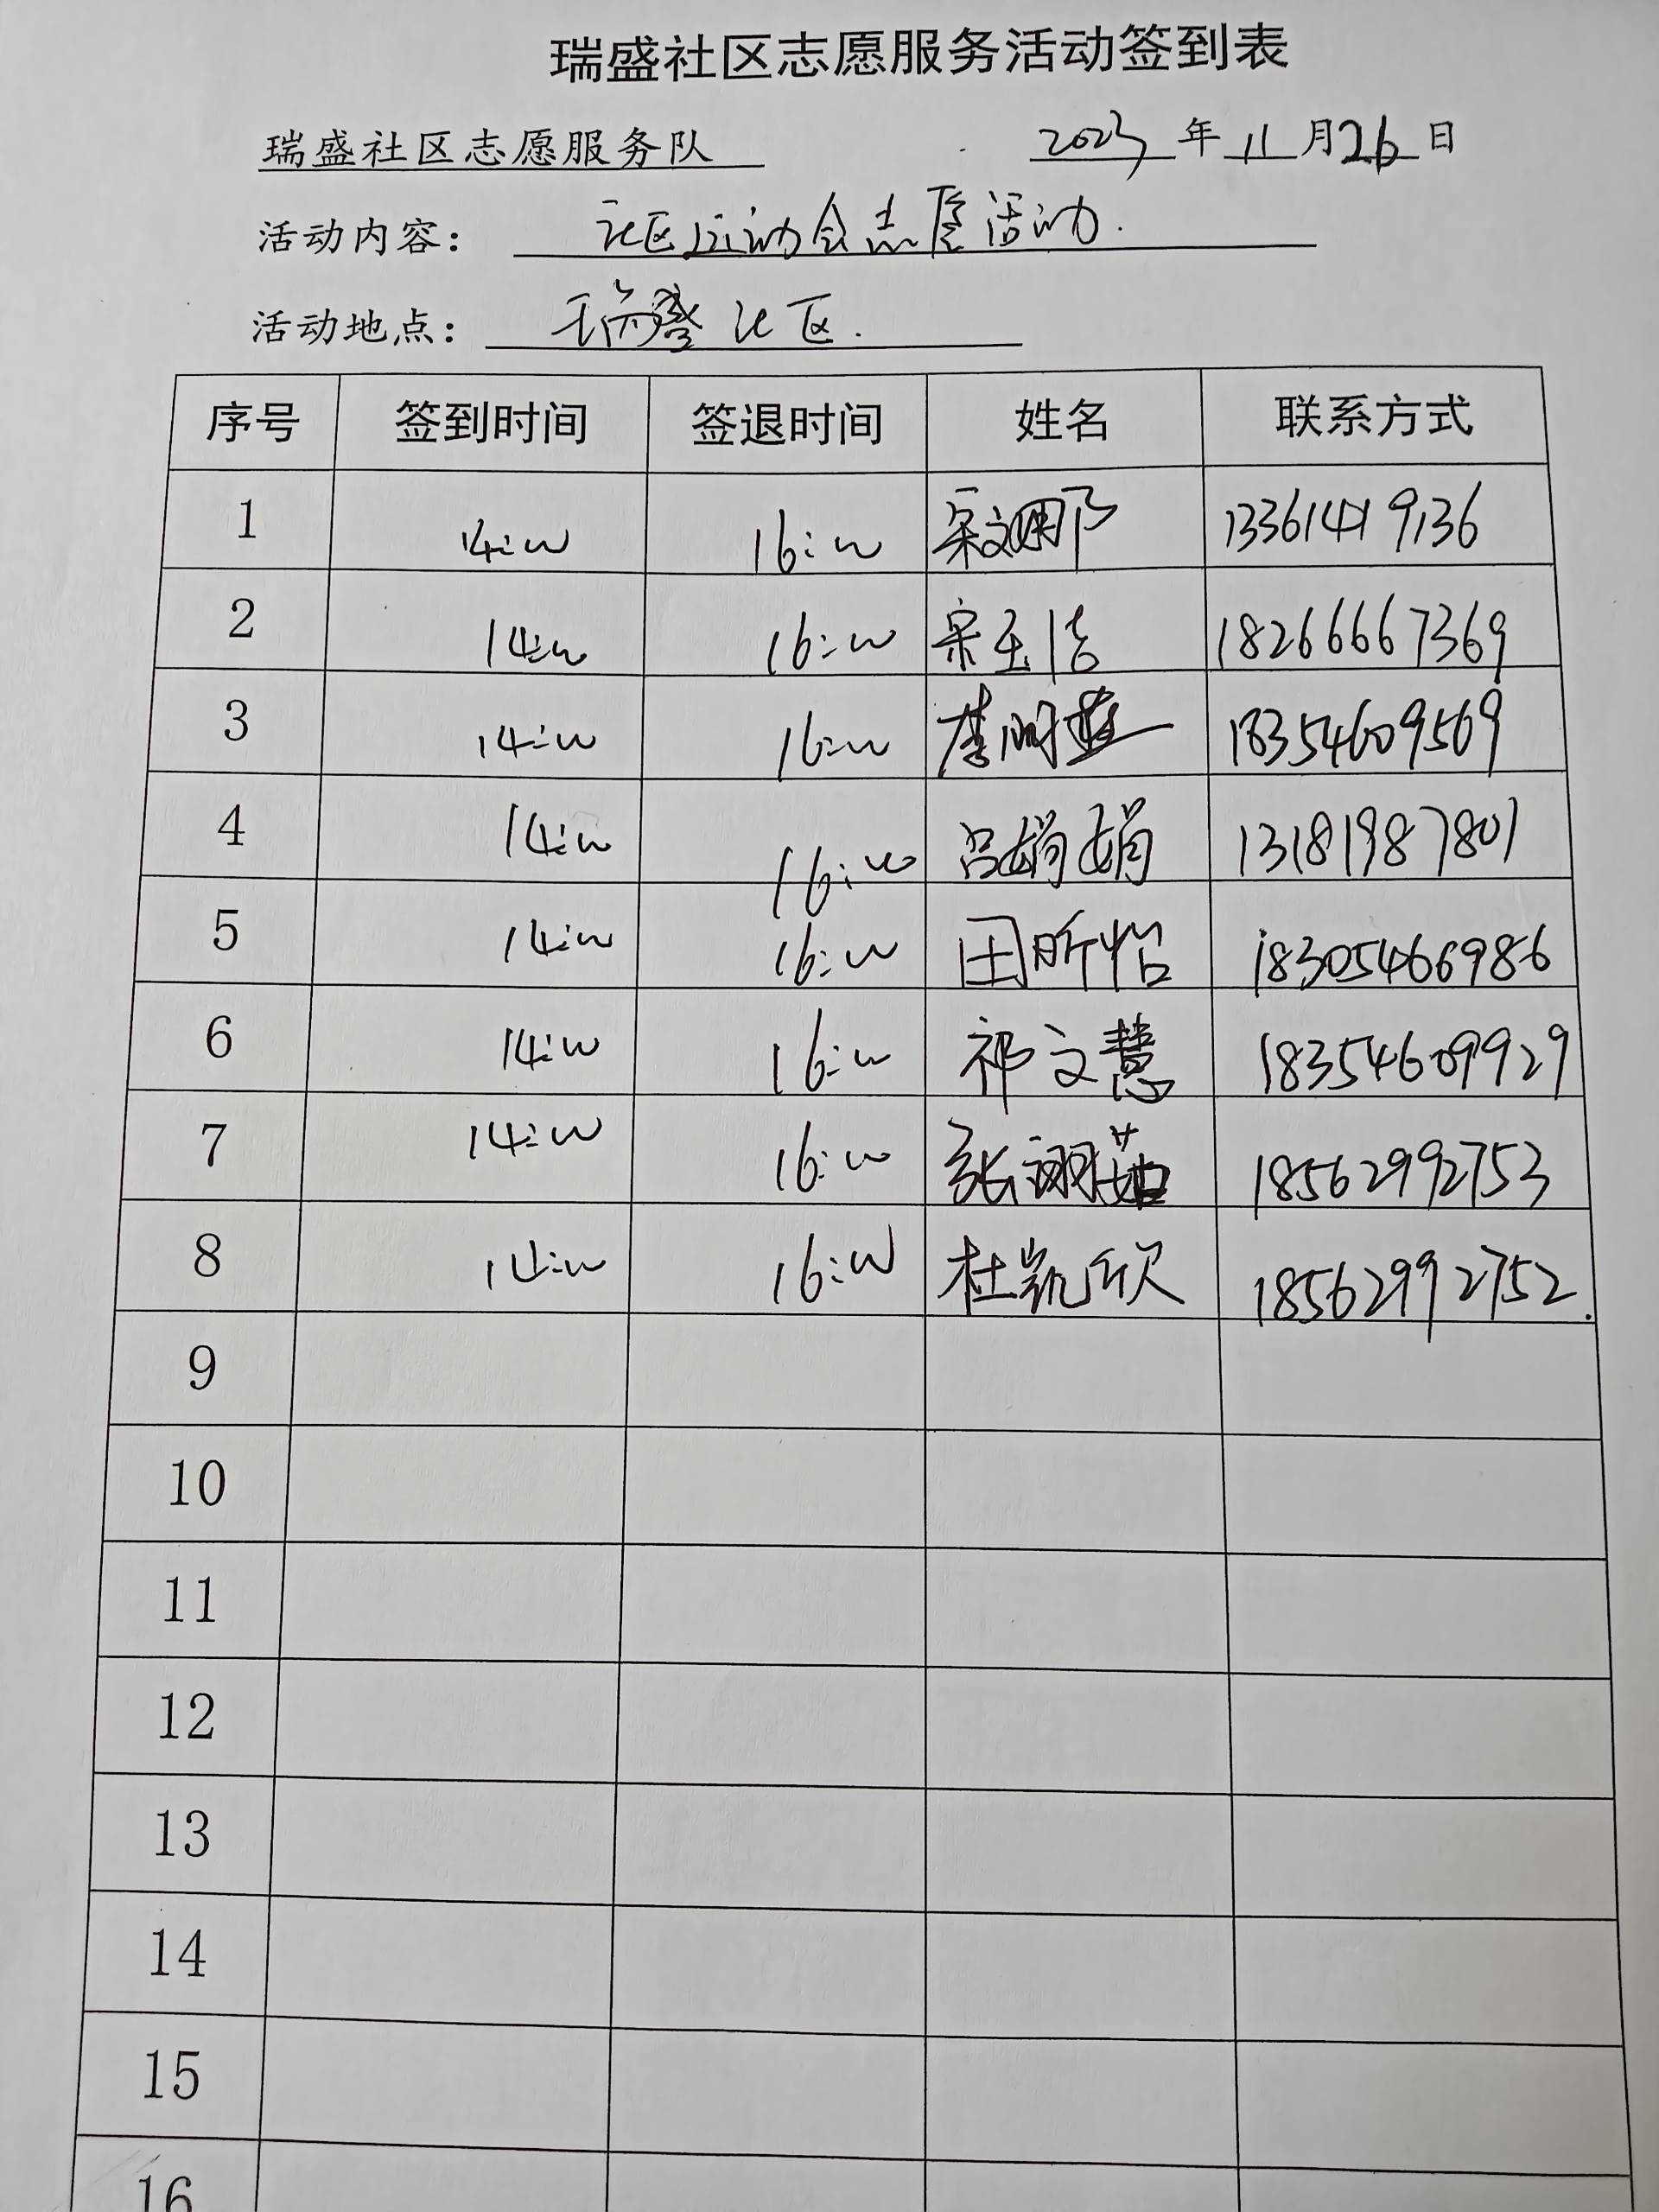 瑞盛社区志愿服务活动签到表
瑞盛社区志愿服务队 2023 年 11 月 26 日
活动内容： 社区运动会志愿活动.
活动地点： 瑞盛社区.
序号 签到时间 签退时间 姓名 联系方式
1 14:00 16:00 宋文 13361419136
2 14:00 16:00 宋玉洁 18266667369
3 14:00 16:00 李明 18354609569
4 14:00 16:00 吕娟娟 13181987801
5 14:00 16:00 田昕怡 18305466986
6 14:00 16:00 祁文慧 18354609929
7 14:00 16:00 张诩茹 18562992753
8 14:00 16:00 杜凯欣 18562992752.
9
10
11
12
13
14
15
16